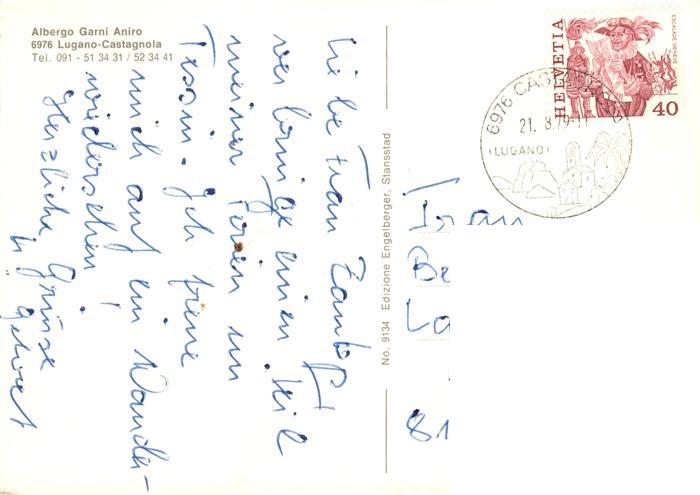 Albergo Garni Aniro
6976 Lugano-Castagnola
Tel. 091 - 51 34 31 / 52 34 41
Liebe Frau
verbringe einen Teil
meiner Ferien im
Tessin. Ich freue
mich auf ein Wander-
wiedersehen!
Herzliche Grüsse
No. 9134 Edizione Engelberger, Stansstad
HELVETIA
ESCALADE GENÈVE
40
6976
21. 8. 79-11
(LUGANO)
Frau
Be
La
81